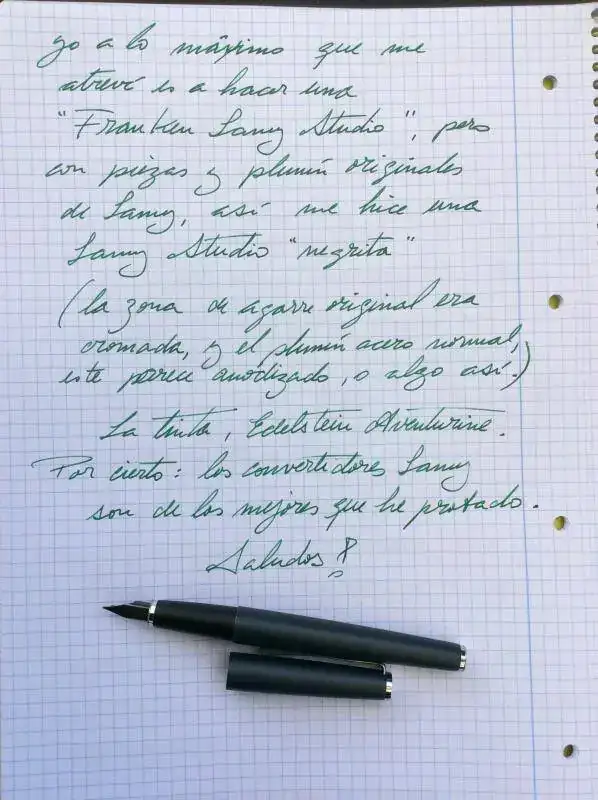 yo a lo máximo que me
atreví es a hacer una
"Franken Lamy Studio", pero
con piezas y plumín originales
de Lamy, así me hice una
Lamy Studio "negrita"
(la zona de agarre original era
cromada, y el plumín acero normal,
este parece anodizado, o algo así.)
La tinta, Edelstein Aventurine.
Por cierto: los convertidores Lamy
son de los mejores que he probado.
Saludos!